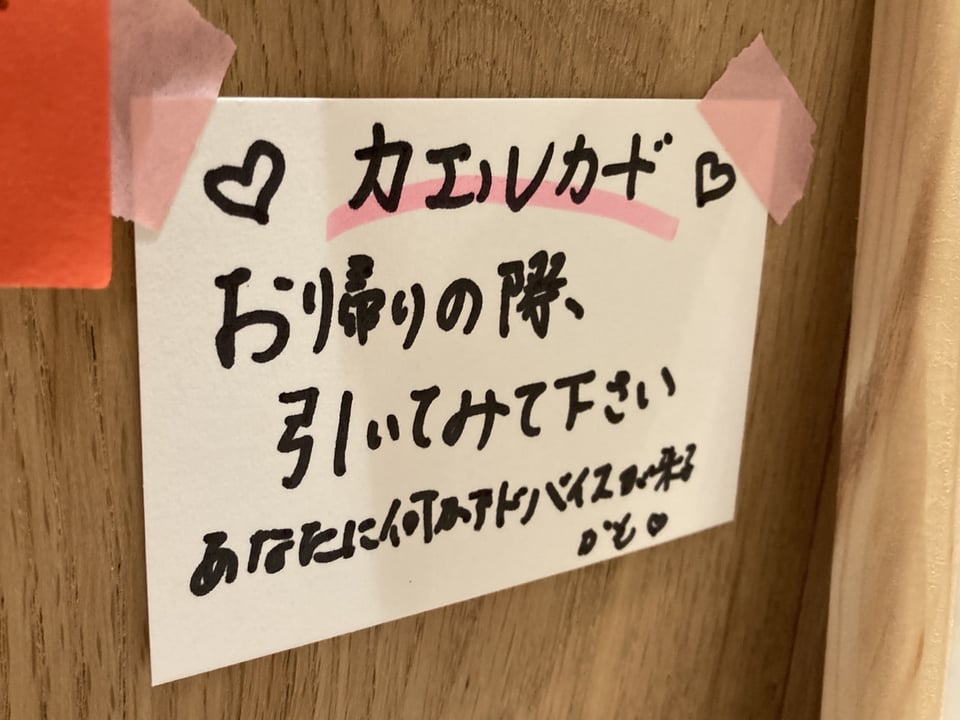 ♡ カエルカード ♡
お帰りの際、
引いてみて下さい
あなたに何かアドバイスが来る
かも♡